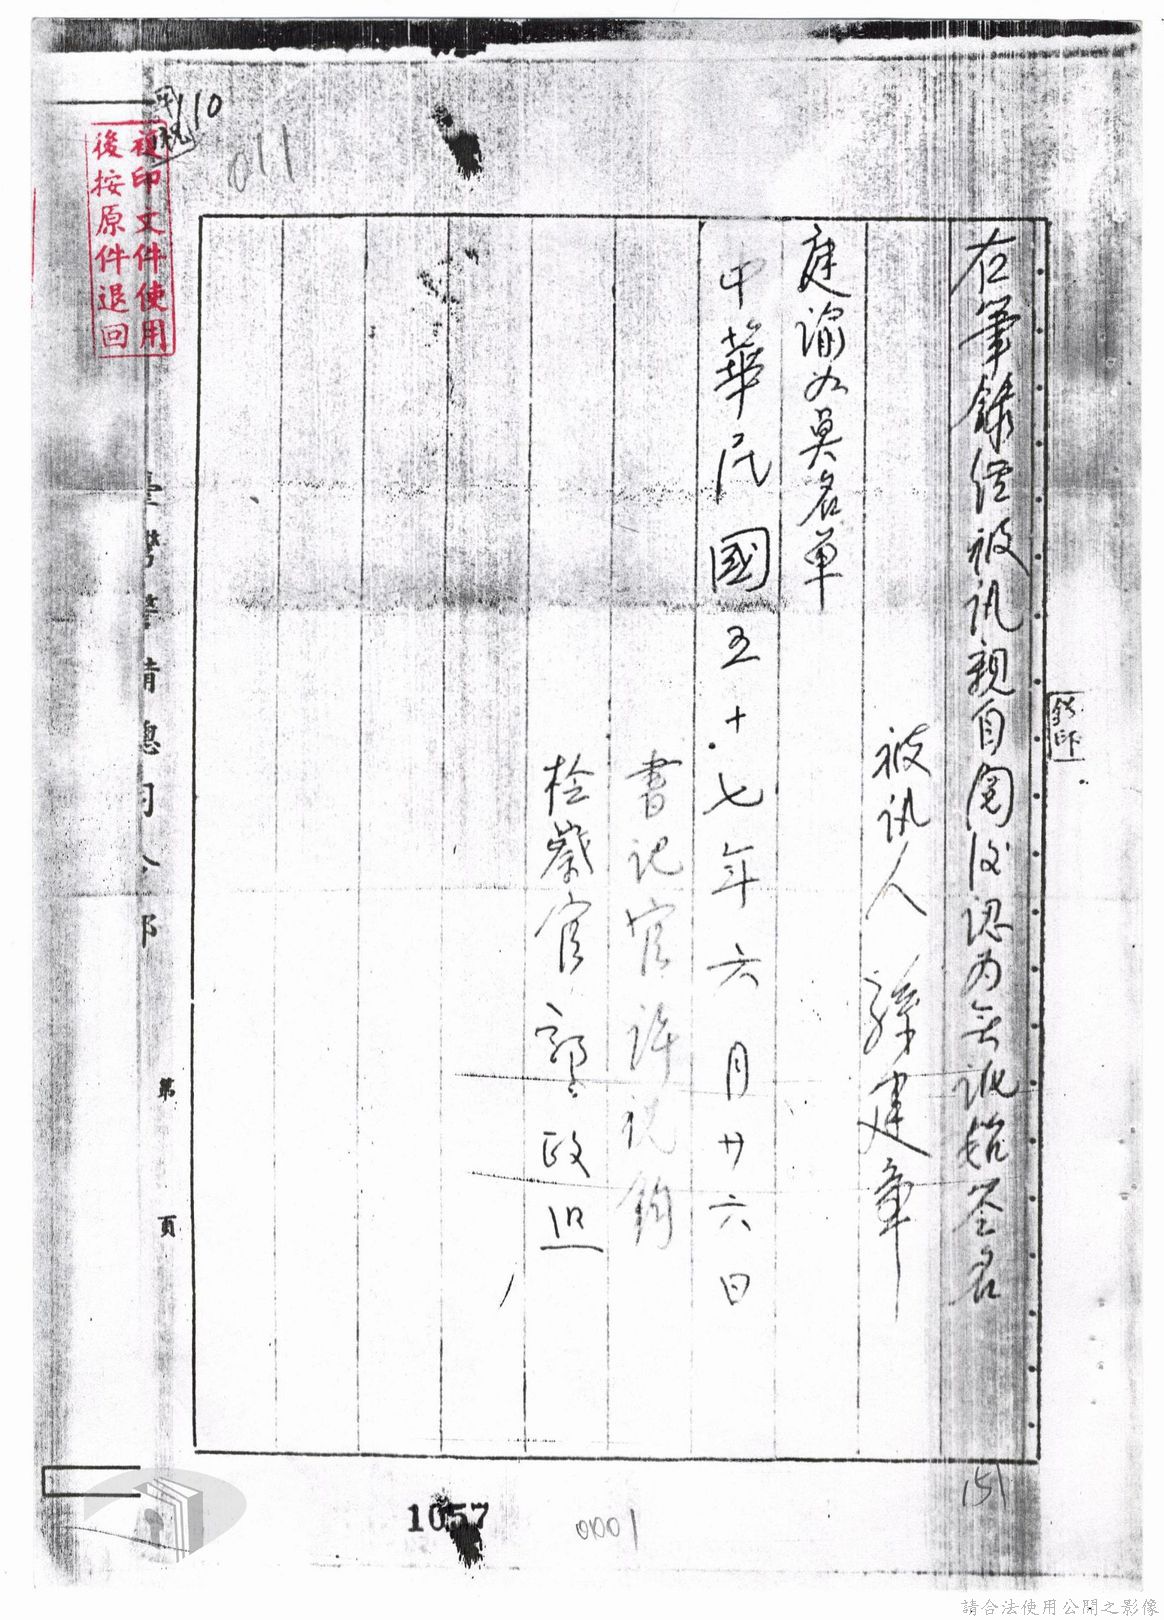 右筆錄經被訊親自閱後認為無訛始簽名
被訊人 孫建章
庭諭如奠名單
中華民國五十七年六月廿六日
書記官 許說鈞
檢察官 郭政迅
臺灣警備總司令部
第 頁
複印文件使用
後按原件退回
110
011
騎印
1057
0001
151
請合法使用公開之影像